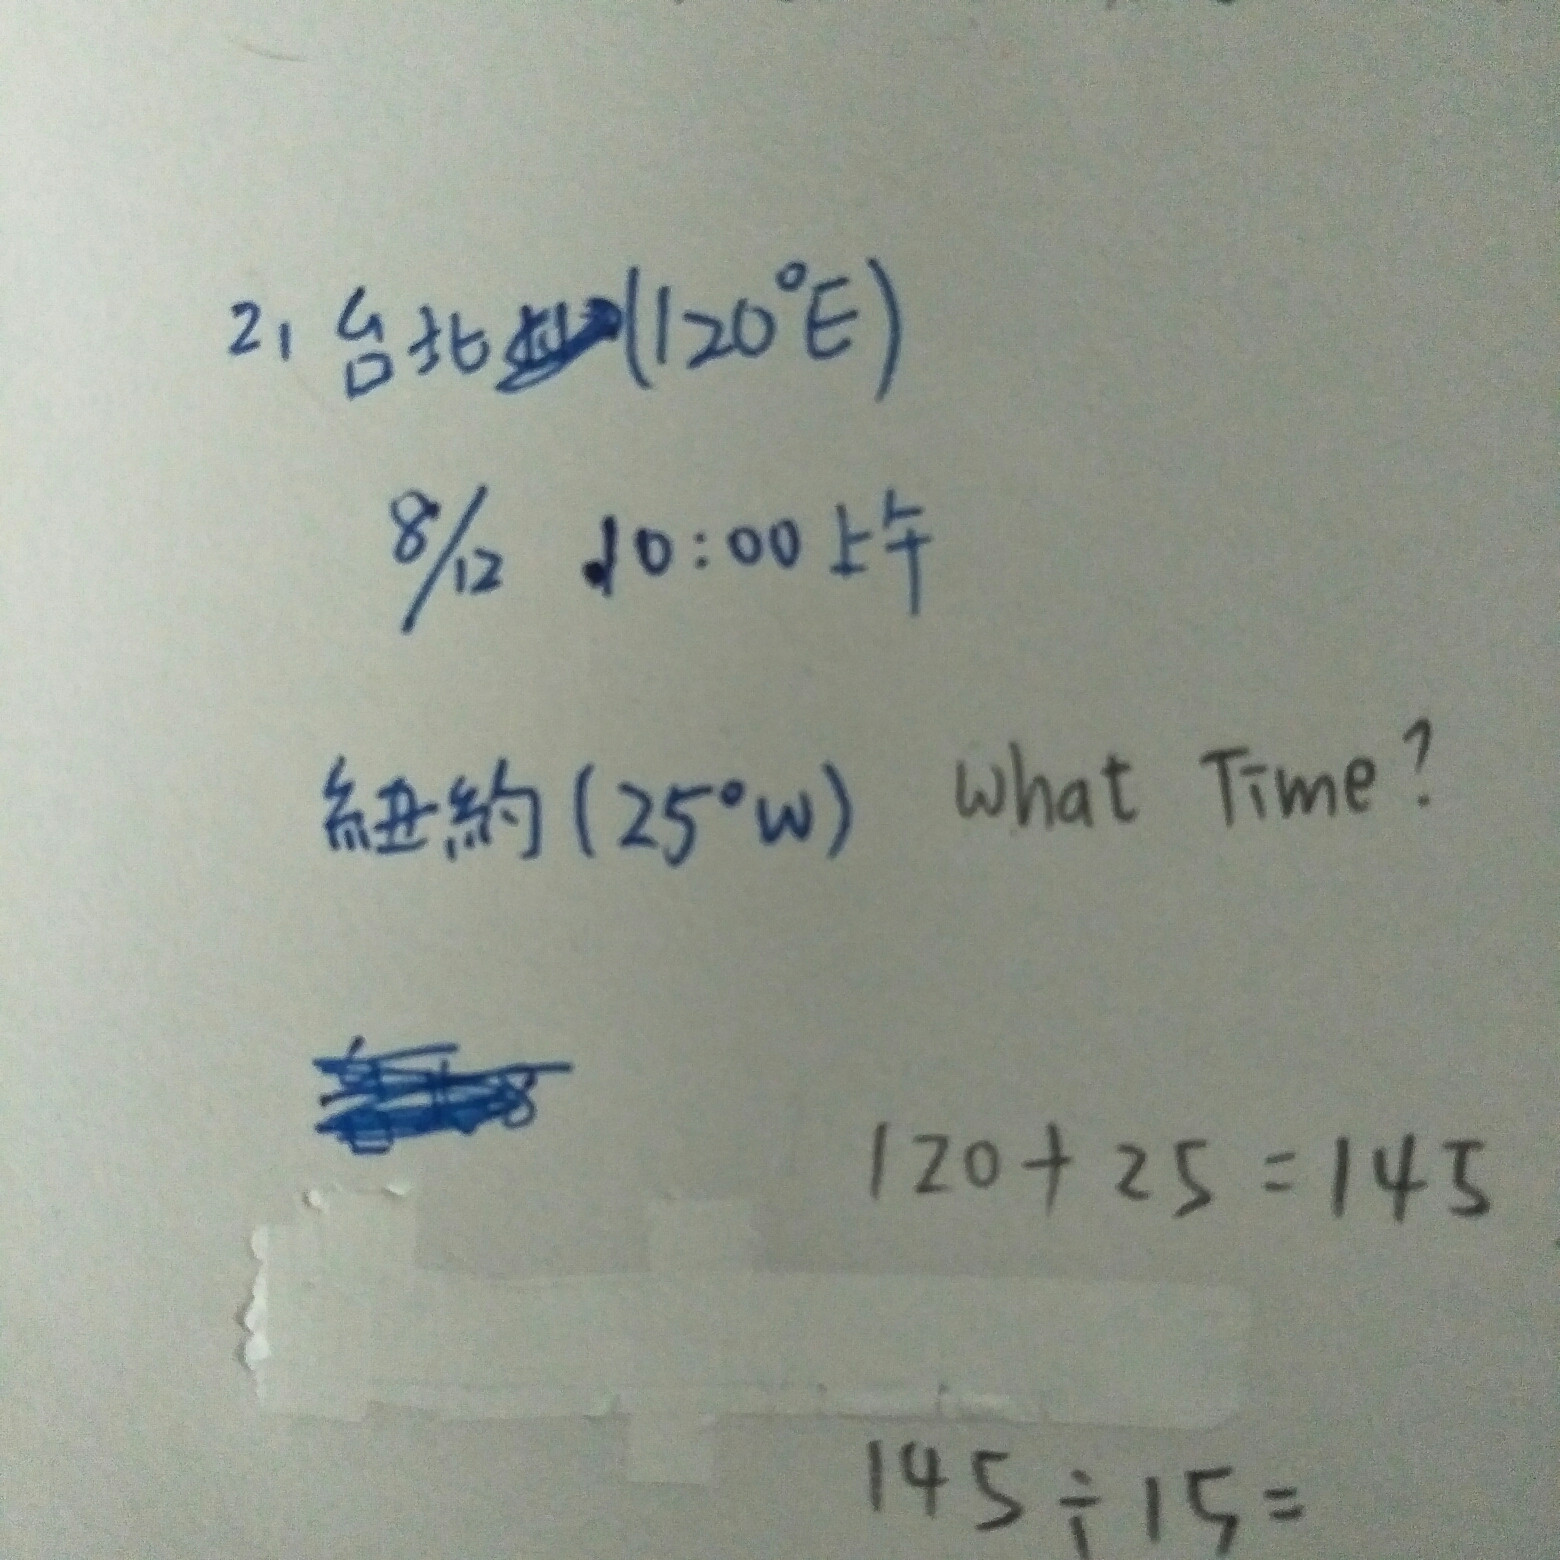 2. 台北(120°E)
8/12 10:00上午
紐約(25°W) What Time?
120+25=145
145÷15=